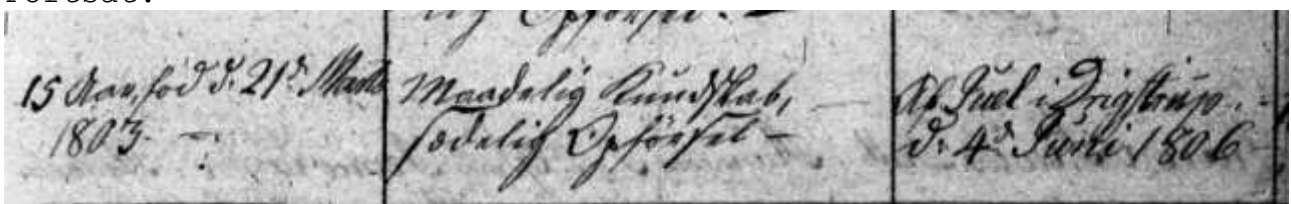 Opførsel. –
15 Aar, fød d. 21d Marts
1803. –
Maadelig Kundskab, –
sædelig Opførsel –
Af Juel i Drigstrup. –
d: 4d Juni 1806 –